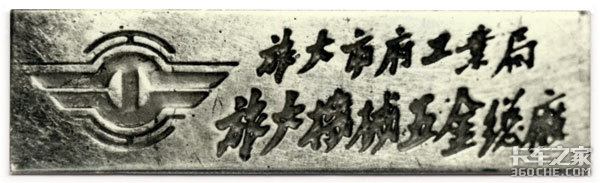 旅大市府工業局
旅大機械五金總廠
卡车之家
360che.com